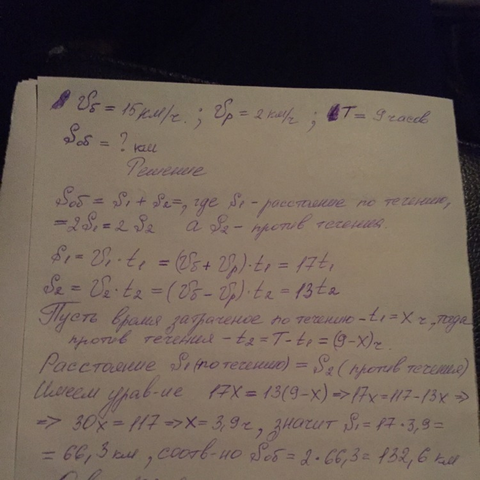 Vб = 15 км/ч. ; Vр = 2 км/ч ; T = 9 часов
Sоб = ? км
Решение
Sоб = S1 + S2 =, где S1 - расстояние по течению,
= 2S1 = 2 S2 а S2 - против течения.
S1 = V1 · t1 = (Vб + Vр) · t1 = 17t1
S2 = V2 · t2 = (Vб - Vр) · t2 = 13t2
Пусть время затраченое по течению - t1 = X ч, тогда
против течения - t2 = T - t1 = (9 - X) ч.
Расстояние S1 (по течению) = S2 (против течения)
Имеем урав-ие 17X = 13(9-X) => 17X = 117 - 13X =>
=> 30X = 117 => X = 3,9 ч, значит S1 = 17 · 3,9 =
= 66,3 км, соотв-но Sоб = 2 · 66,3 = 132,6 км